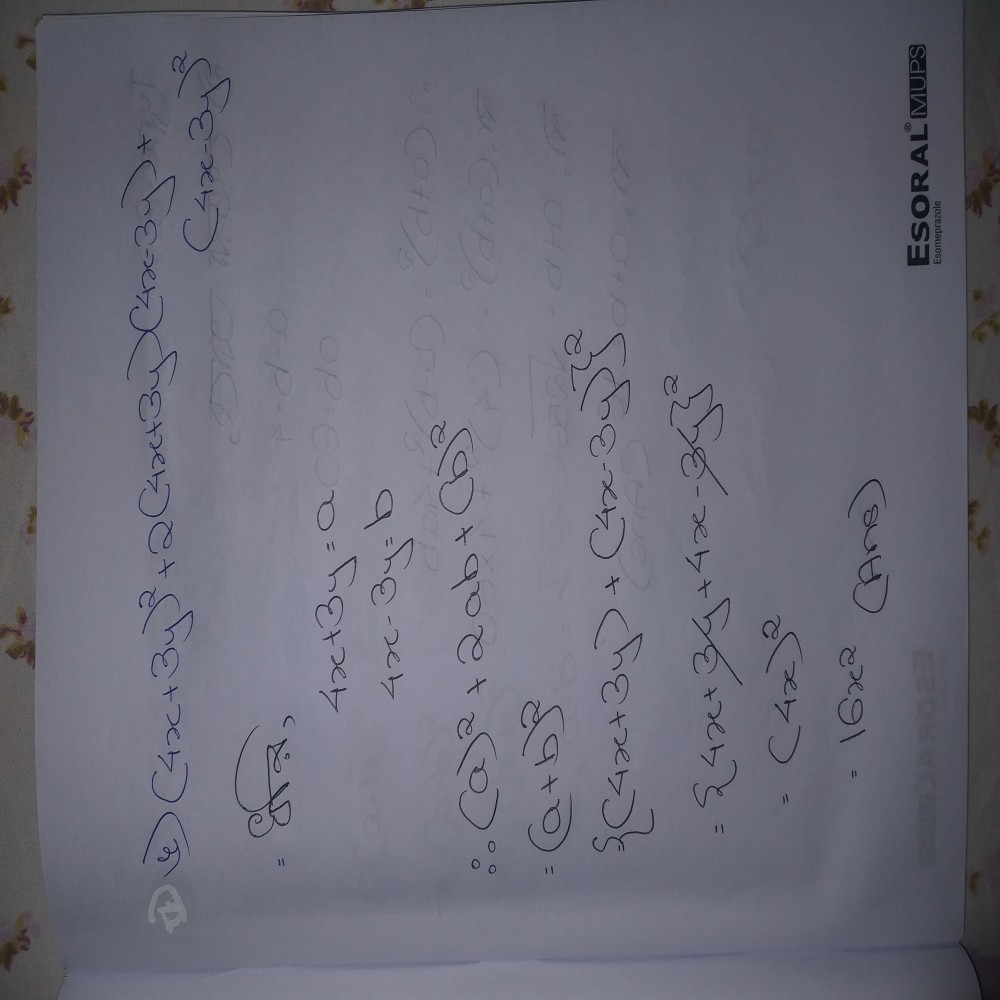 (4x+3y)² + 2(4x+3y)(4x-3y) +
(4x-3y)²
= ধরি,
4x+3y = a
4x-3y = b
∴ (a)² + 2ab + (b)²
= (a+b)²
= {(4x+3y) + (4x-3y)}²
= {4x+3y+4x-3y}²
= (4x)²
= 16x² (Ans)
ESORAL® MUPS
Esomeprazole